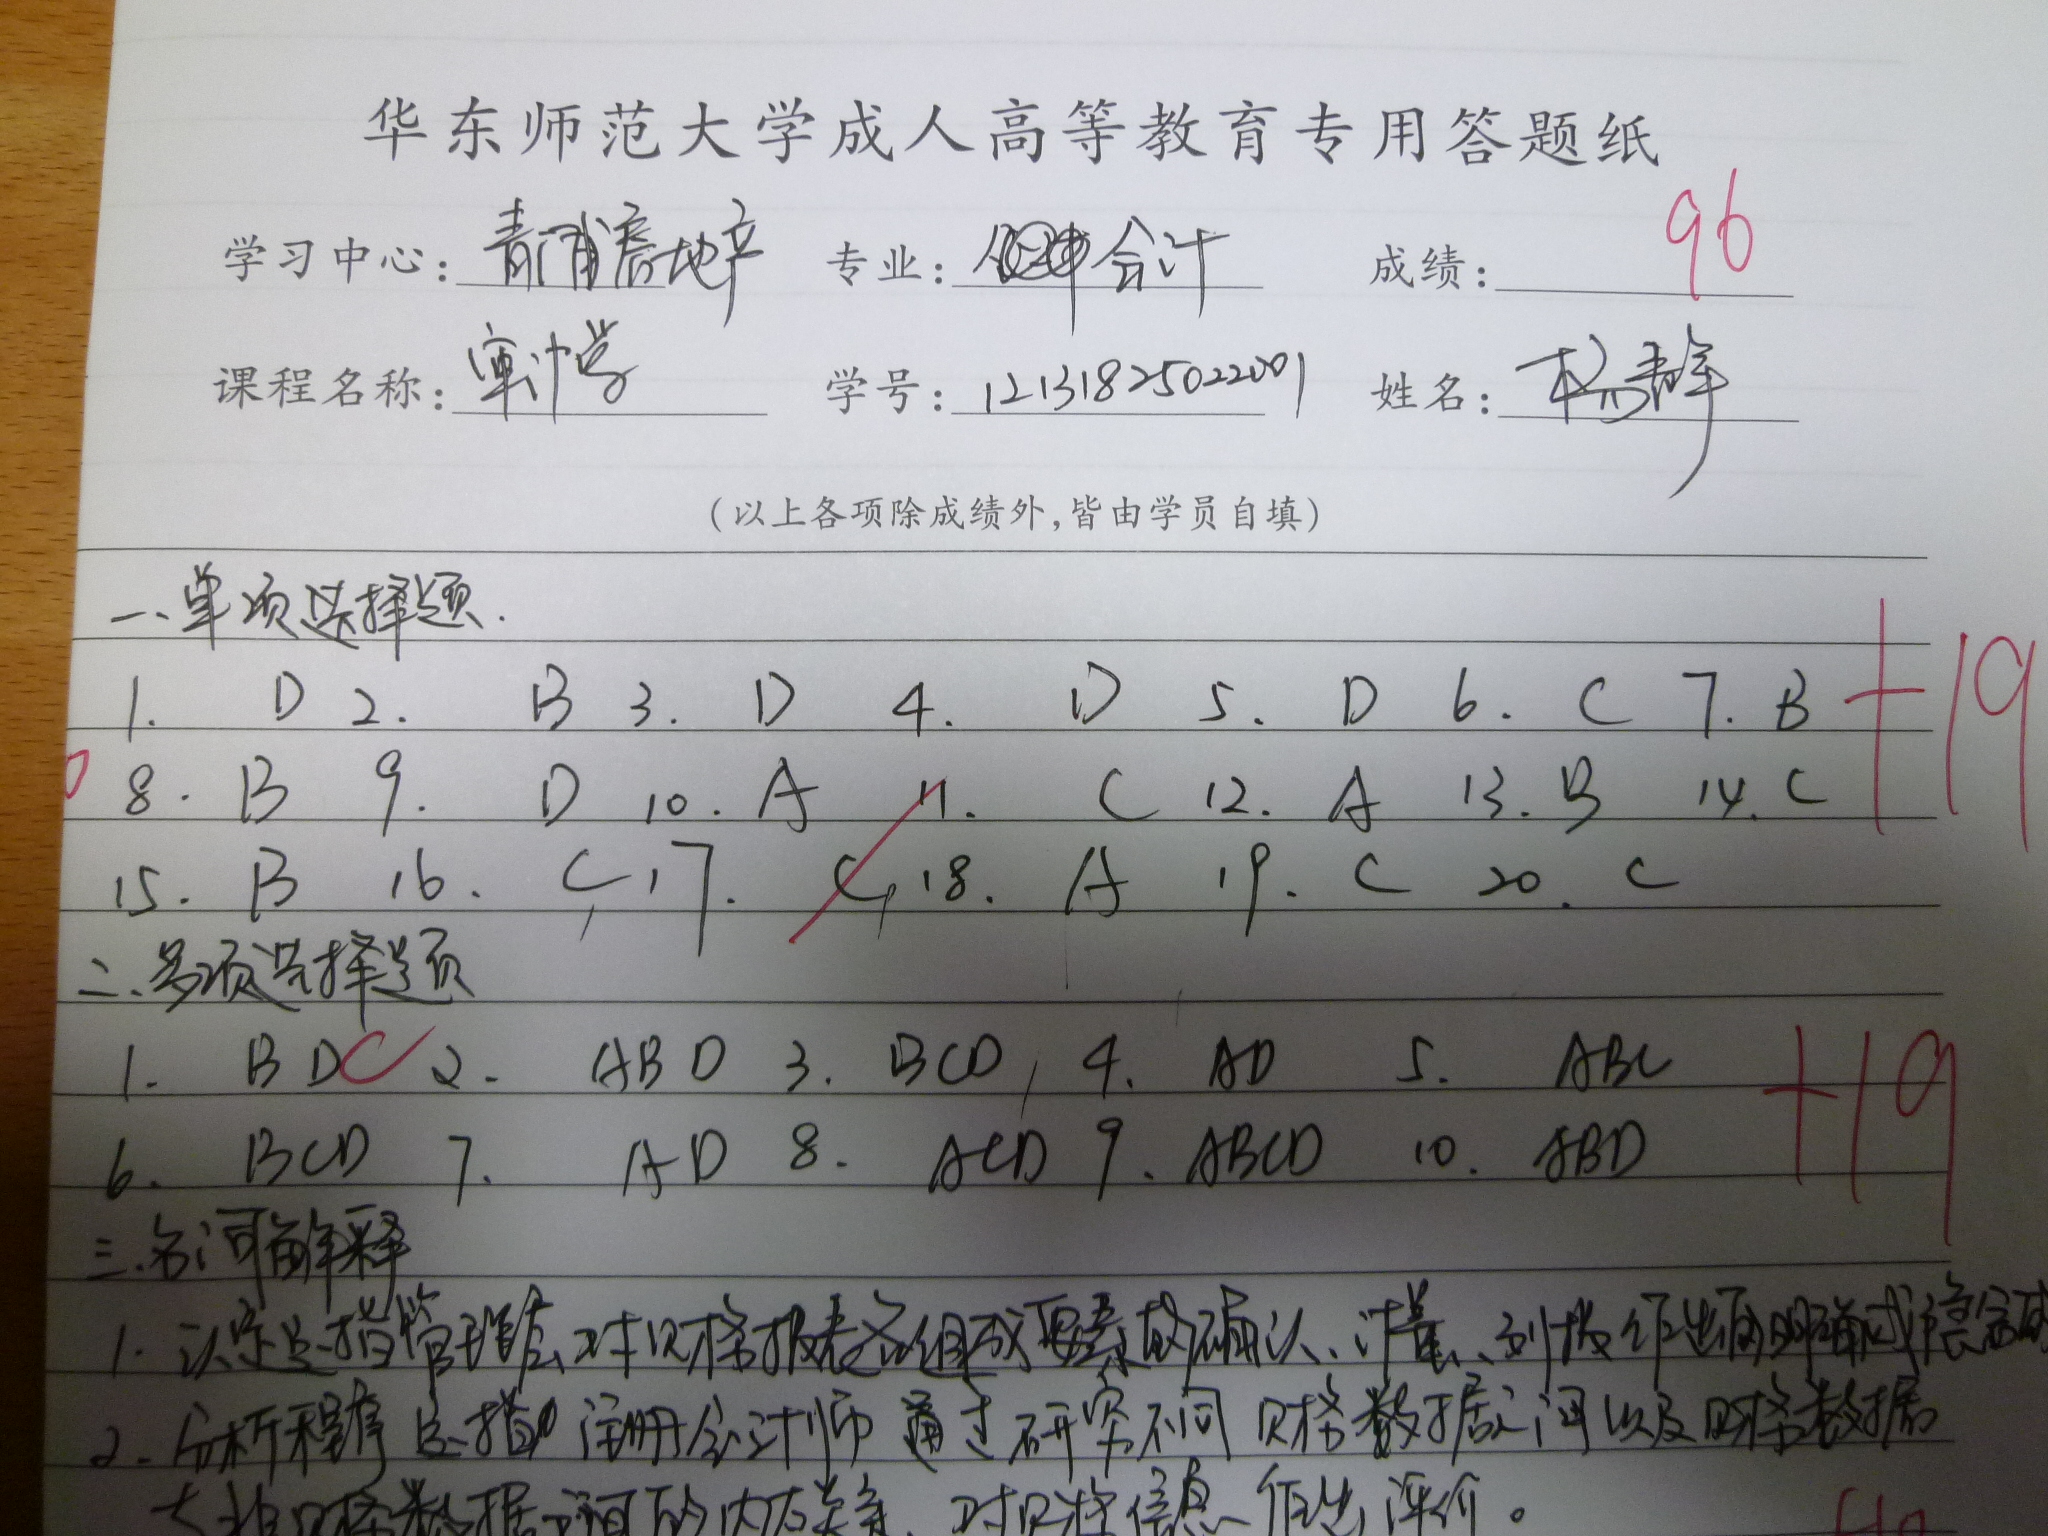 华东师范大学成人高等教育专用答题纸
学习中心: 青浦房地产 专业: 会计 成绩: 96
课程名称: 审计学 学号: 12131825022001 姓名: 杨青峰
(以上各项除成绩外,皆由学员自填)
一、单项选择题.
1. D 2. B 3. D 4. D 5. D 6. C 7. B +19
8. B 9. D 10. A 11. C 12. A 13. B 14. C
15. B 16. C, 17. C, 18. A 19. C 20. C
二、多项选择题
1. BDC 2. ABD 3. BCD, 4. AD 5. ABC +19
6. BCD 7. AD 8. ACD 9. ABCD 10. ABD
三.名词解释
1. 认定是指管理层对财务报表各组成要素的确认、计量、列报作出的明确或隐含的
2. 分析程序是指注册会计师通过研究不同财务数据之间以及财务数据
与非财务数据之间的内在关系,对财务信息作出评价。